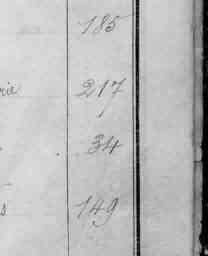 185
217
34
149